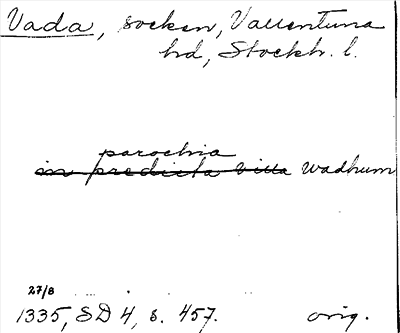 Vada, socken, Vallentuna
hd, Stockh. l.
parochia
in predicta villa Wadhum
27/8
1335, SD 4, s. 457. orig.